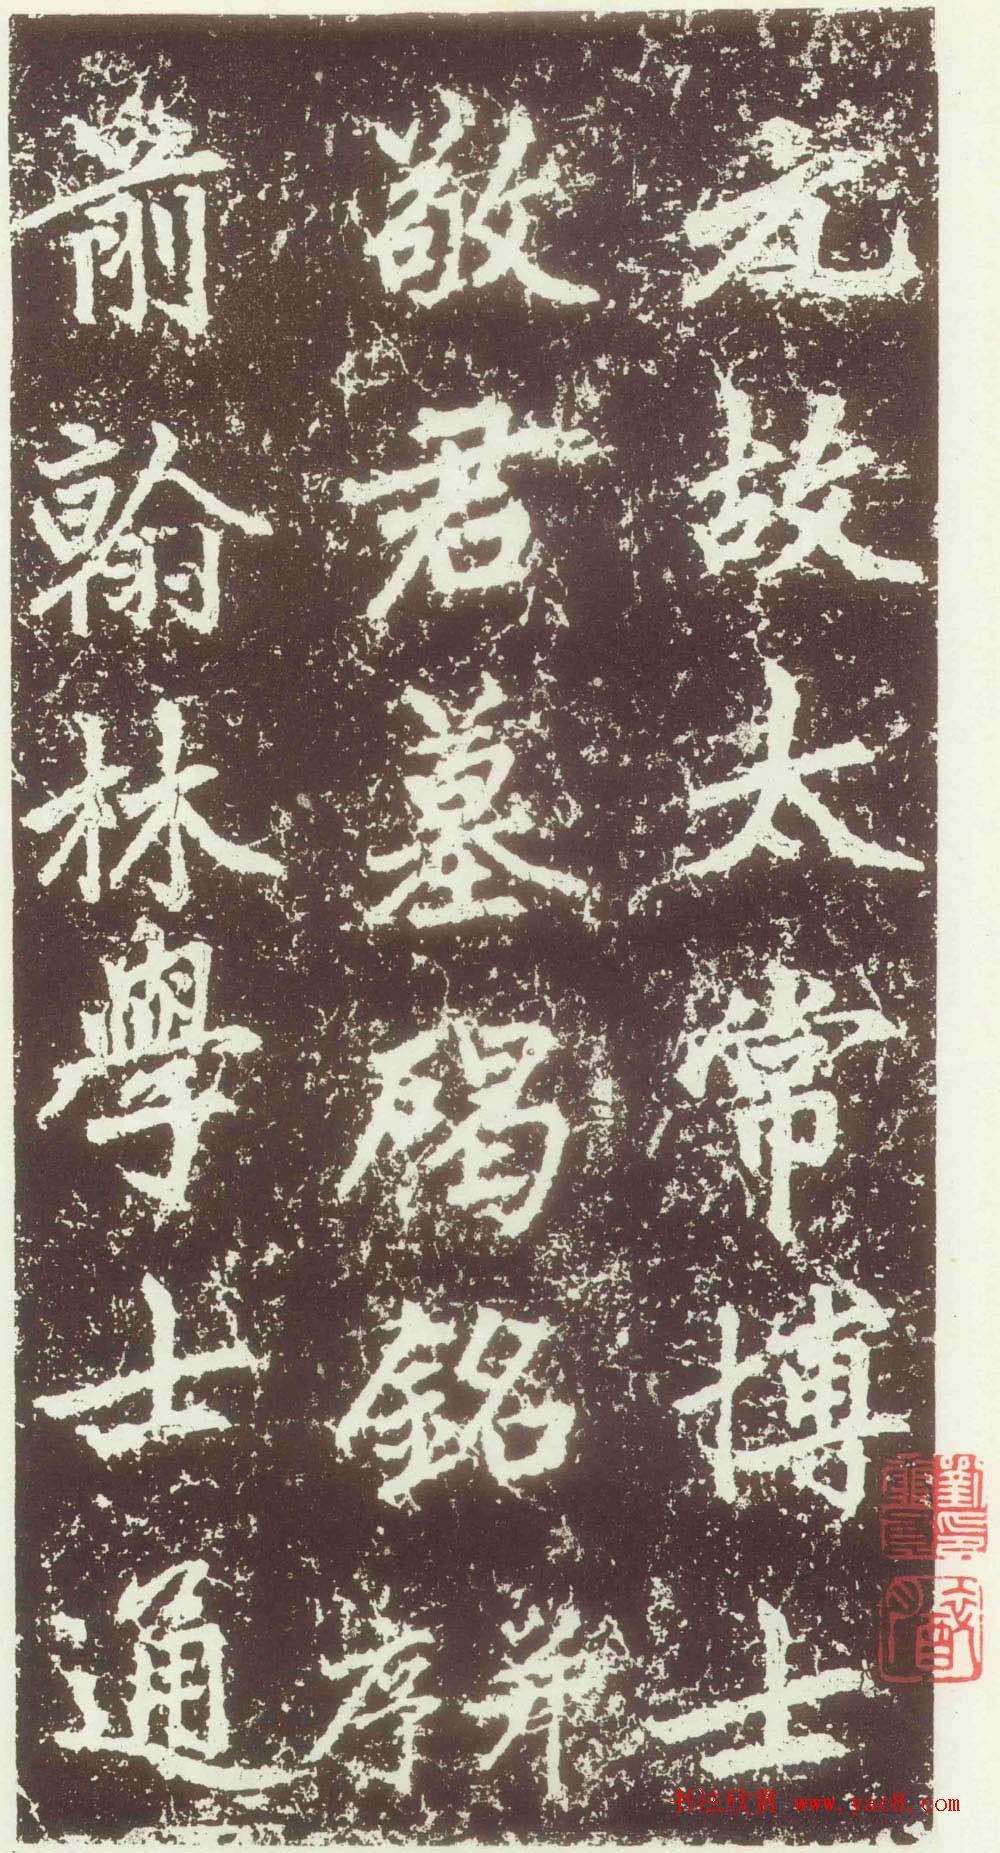 元故太常博士
敬君墓碣銘并序
前翰林學士通
书法欣赏 www.yac8.com